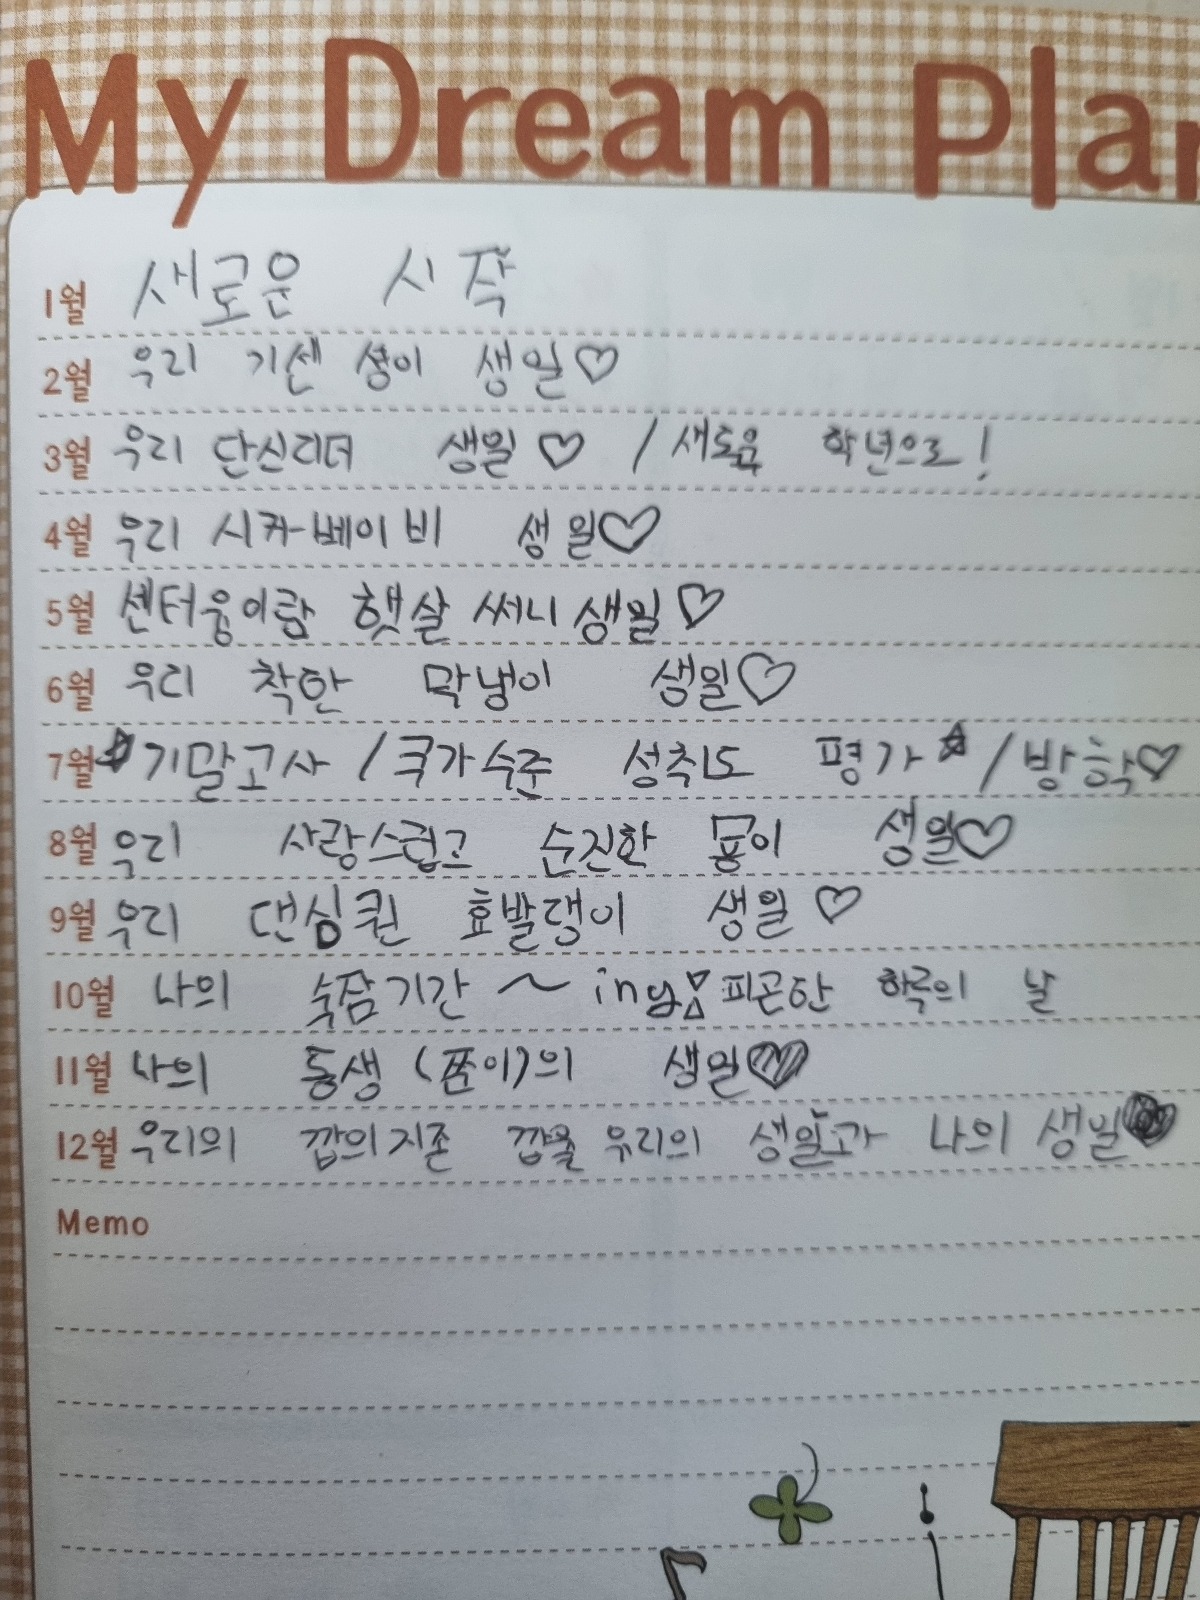 My Dream Plan
1월 새로운 시작
2월 우리 기센 셩이 생일♡
3월 우리 단신리더 생일♡ / 새로운 학년으로!
4월 우리 시카 베이비 생일♡
5월 센터윰이랑 햇살 써니 생일♡
6월 우리 착한 막냉이 생일♡
7월 ☆기말고사 / 국가수준 성취도 평가☆ / 방학♡
8월 우리 사랑스럽고 순진한 뭉이 생일♡
9월 우리 댄싱퀸 효발댕이 생일♡
10월 나의 수잠기간 ~ ing 피곤한 하루의 날
11월 나의 동생 (쭌이)의 생일♡
12월 우리의 깝의지존 깝율 유리의 생일과 나의 생일♡
Memo